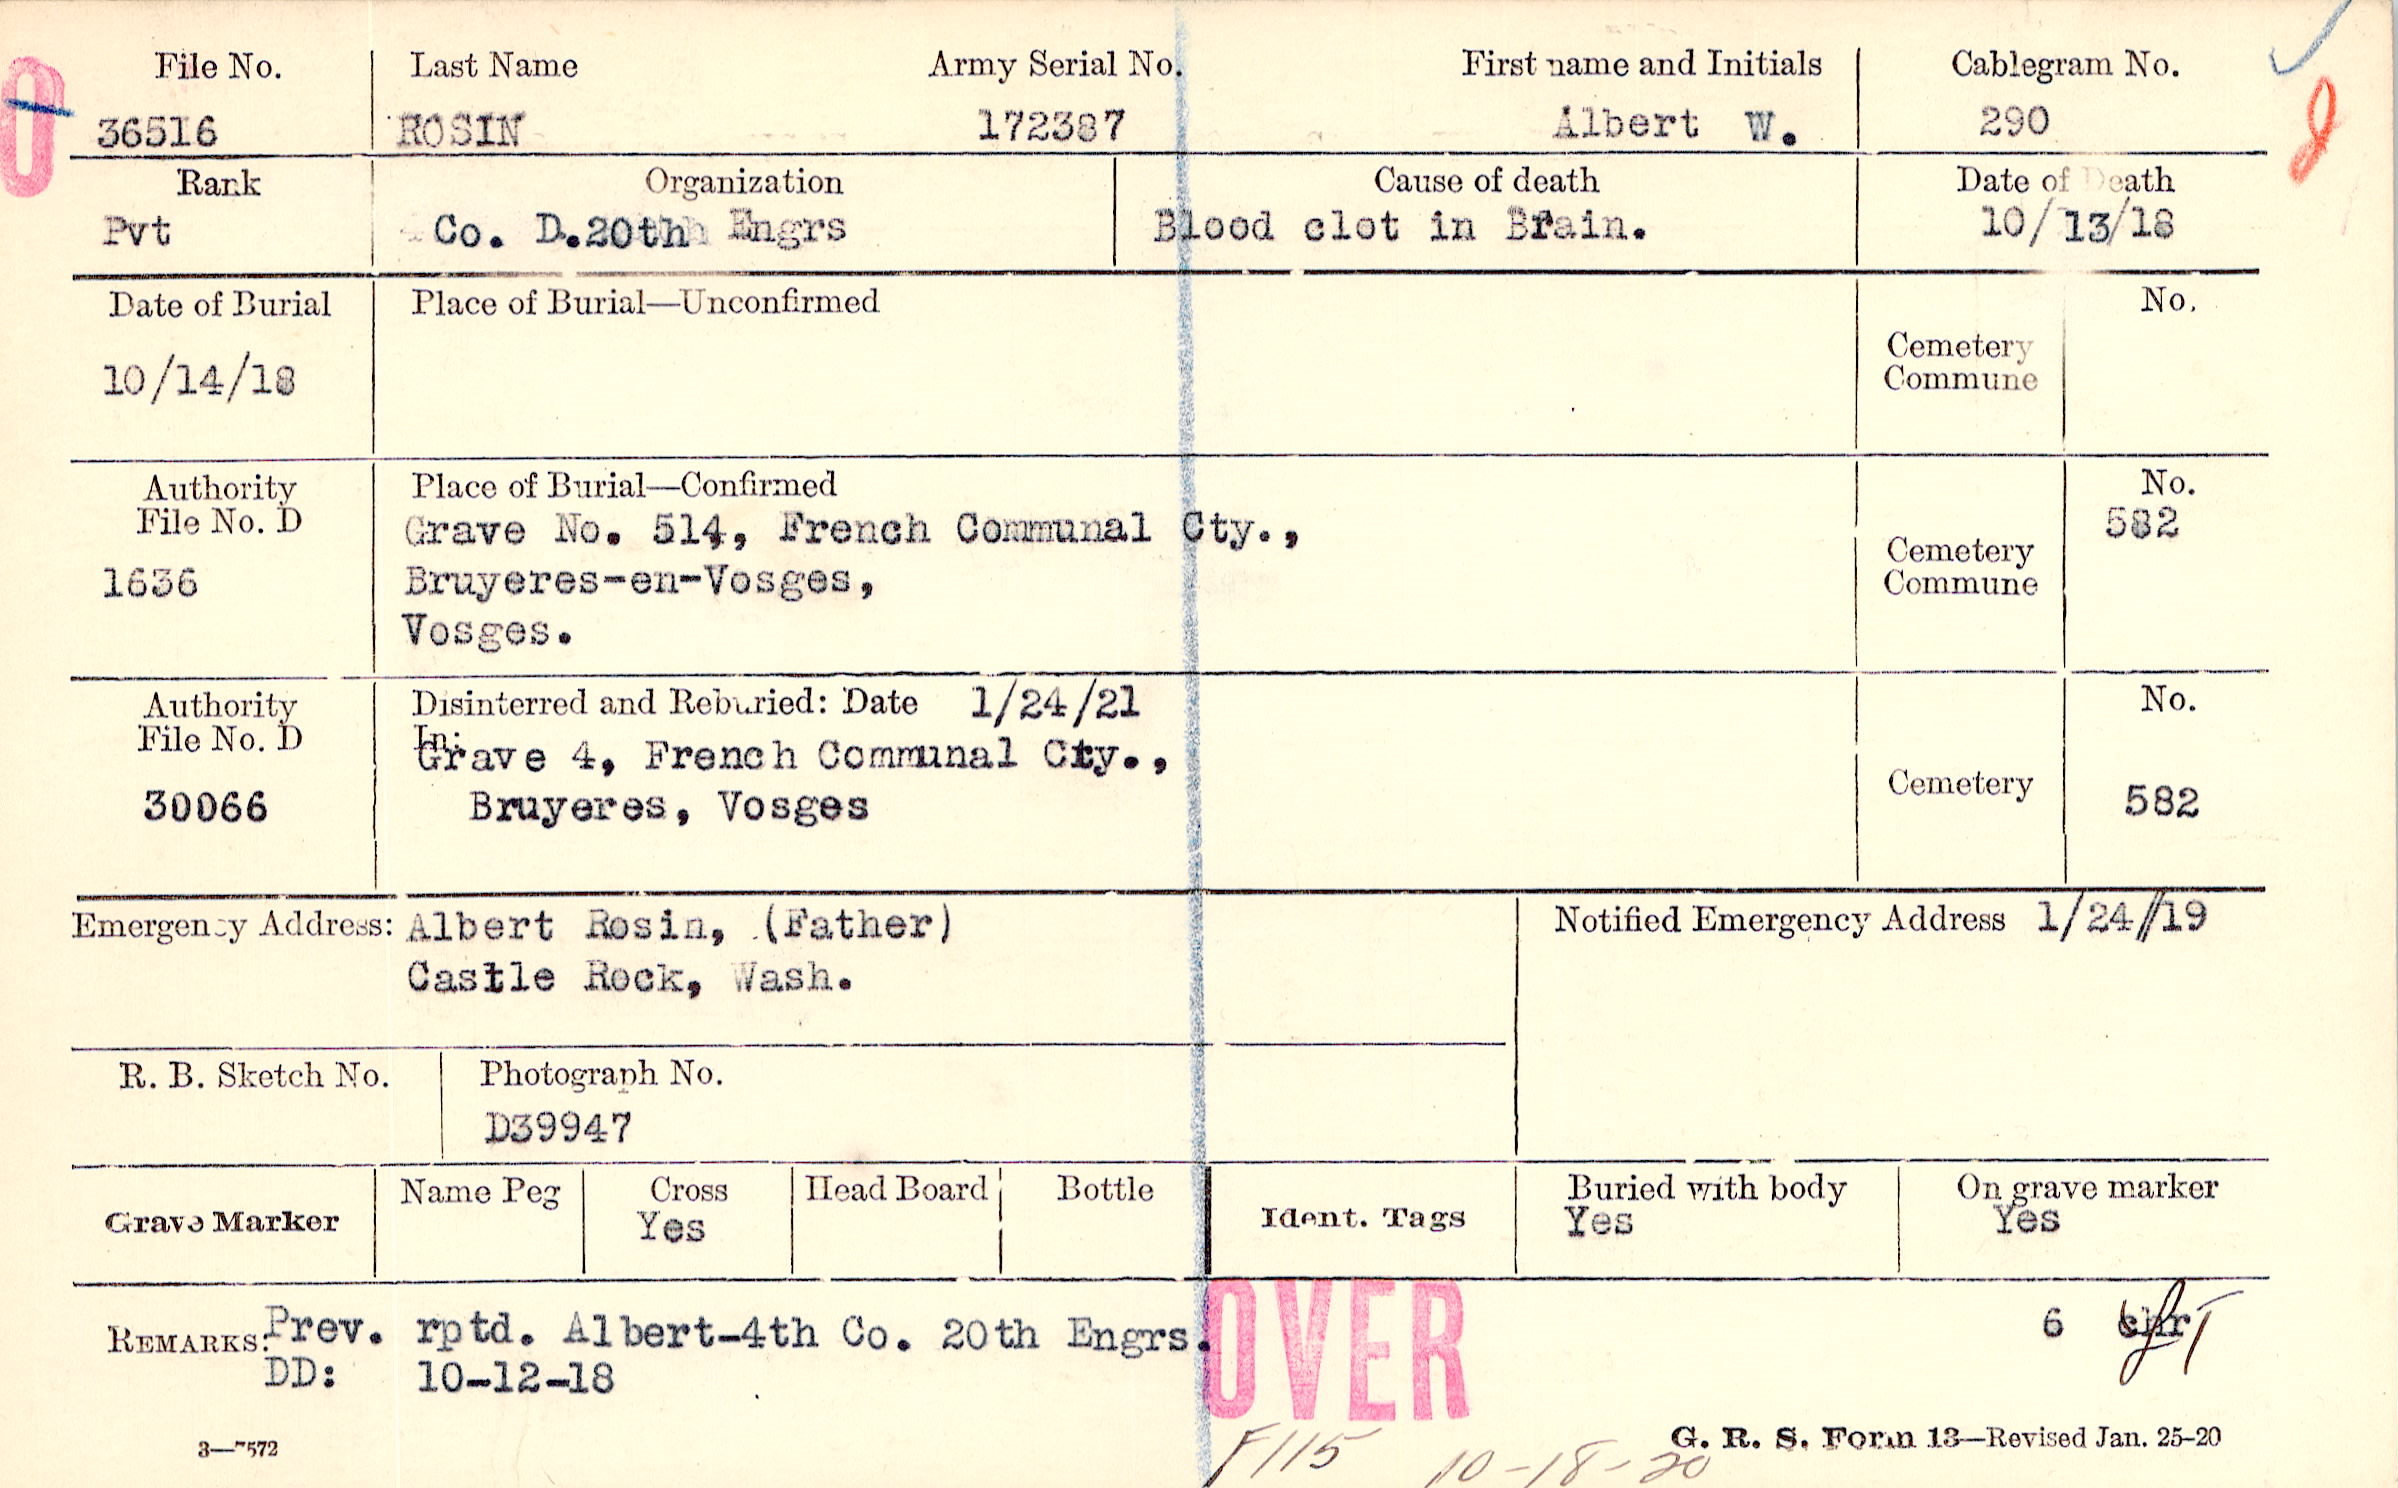 File No. Last Name Army Serial No. First name and Initials Cablegram No.
36516 ROSIN 172387 Albert W. 290
Rank Organization Cause of death Date of Death
Pvt Co. D.20th Engrs Blood clot in Brain. 10/13/18
Date of Burial Place of Burial—Unconfirmed No.
Cemetery
10/14/18 Commune
Authority Place of Burial—Confirmed No.
File No. D Grave No. 514, French Communal Cty., 582
Cemetery
1636 Bruyeres-en-Vosges, Commune
Vosges.
Authority Disinterred and Reburied: Date 1/24/21 No.
File No. D In:
Grave 4, French Communal Cty.,
Cemetery
30066 Bruyeres, Vosges 582
Emergency Address: Albert Rosin, (Father) Notified Emergency Address 1/24//19
Castle Rock, Wash.
R. B. Sketch No. Photograph No.
D39947
Name Peg Cross Head Board Bottle Buried with body On grave marker
Grave Marker Yes Ident. Tags Yes Yes
REMARKS: Prev. rptd. Albert-4th Co. 20th Engrs. OVER 6
DD: 10-12-18
3—7572 G. R. S. Form 13—Revised Jan. 25-20
F115 10-18-20